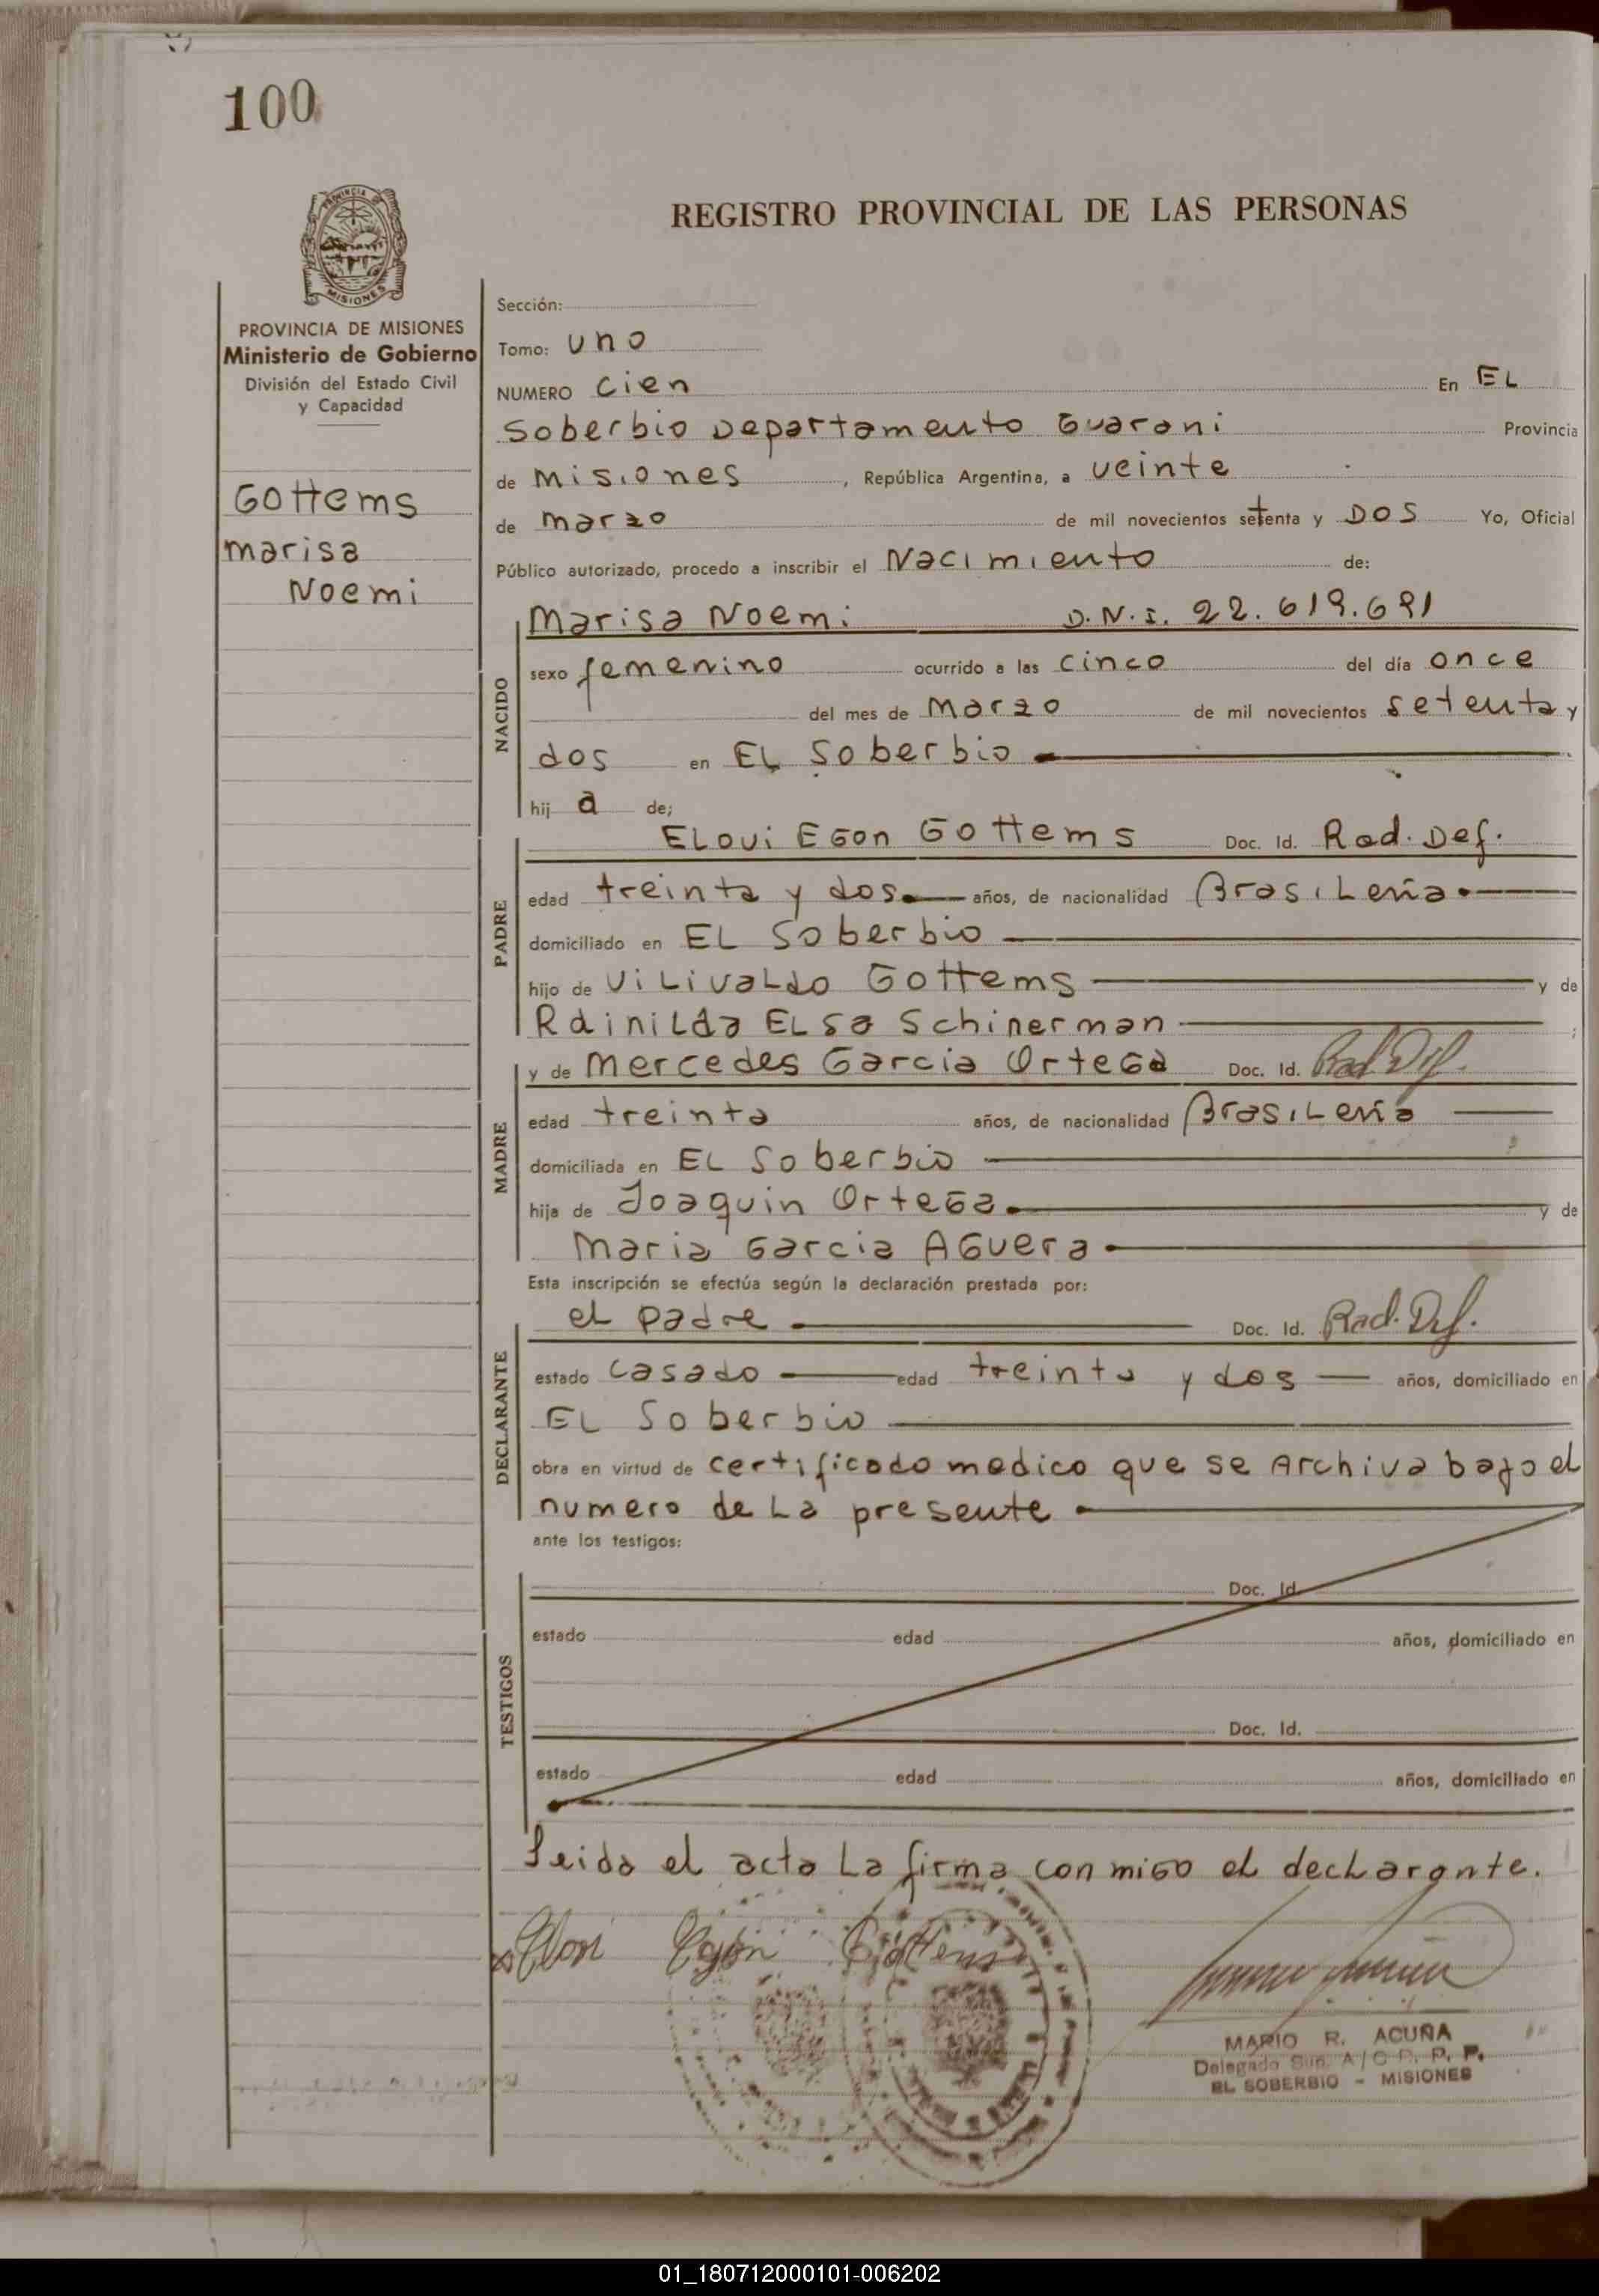 100
PROVINCIA
MISIONES
PROVINCIA DE MISIONES
Ministerio de Gobierno
División del Estado Civil
y Capacidad
Gottems
Marisa
Noemi
REGISTRO PROVINCIAL DE LAS PERSONAS
Sección:
Tomo: uno
NUMERO cien En EL
Soberbio Departamento Guarani Provincia
de Misiones, República Argentina, a veinte
de marzo de mil novecientos setenta y DOS Yo, Oficial
Público autorizado, procedo a inscribir el Nacimiento de:
NACIDO
Marisa Noemi D.N.I. 22.619.691
sexo femenino ocurrido a las cinco del día once
del mes de Marzo de mil novecientos setenta y
dos en EL Soberbio
hij a de;
PADRE
ELOVi EGon Gottems Doc. Id. Rad. Def.
edad treinta y dos años, de nacionalidad BrasiLeña
domiciliado en EL Soberbio
hijo de ViLivaLdo Gottems y de
RainiLda ELsa Schinerman ;
MADRE
y de Mercedes Garcia Ortega Doc. Id. Rad. Def.
edad treinta años, de nacionalidad BrasiLeña
domiciliada en EL Soberbio
hija de Joaquin Ortega y de
Maria Garcia Aguera
Esta inscripción se efectúa según la declaración prestada por:
DECLARANTE
el padre Doc. Id. Rad. Def.
estado casado edad treinta y dos años, domiciliado en
EL Soberbio
obra en virtud de certificado medico que se Archiva bajo el
numero de La presente
ante los testigos:
TESTIGOS
Doc. Id.
estado edad años, domiciliado en
Doc. Id.
estado edad años, domiciliado en
Leida el acta La firma conmigo el decLarante.
Elovi Egon Gottems
MARIO R. ACUÑA
Delegado Sup. A/C R. P. P.
EL SOBERBIO - MISIONES
01_180712000101-006202